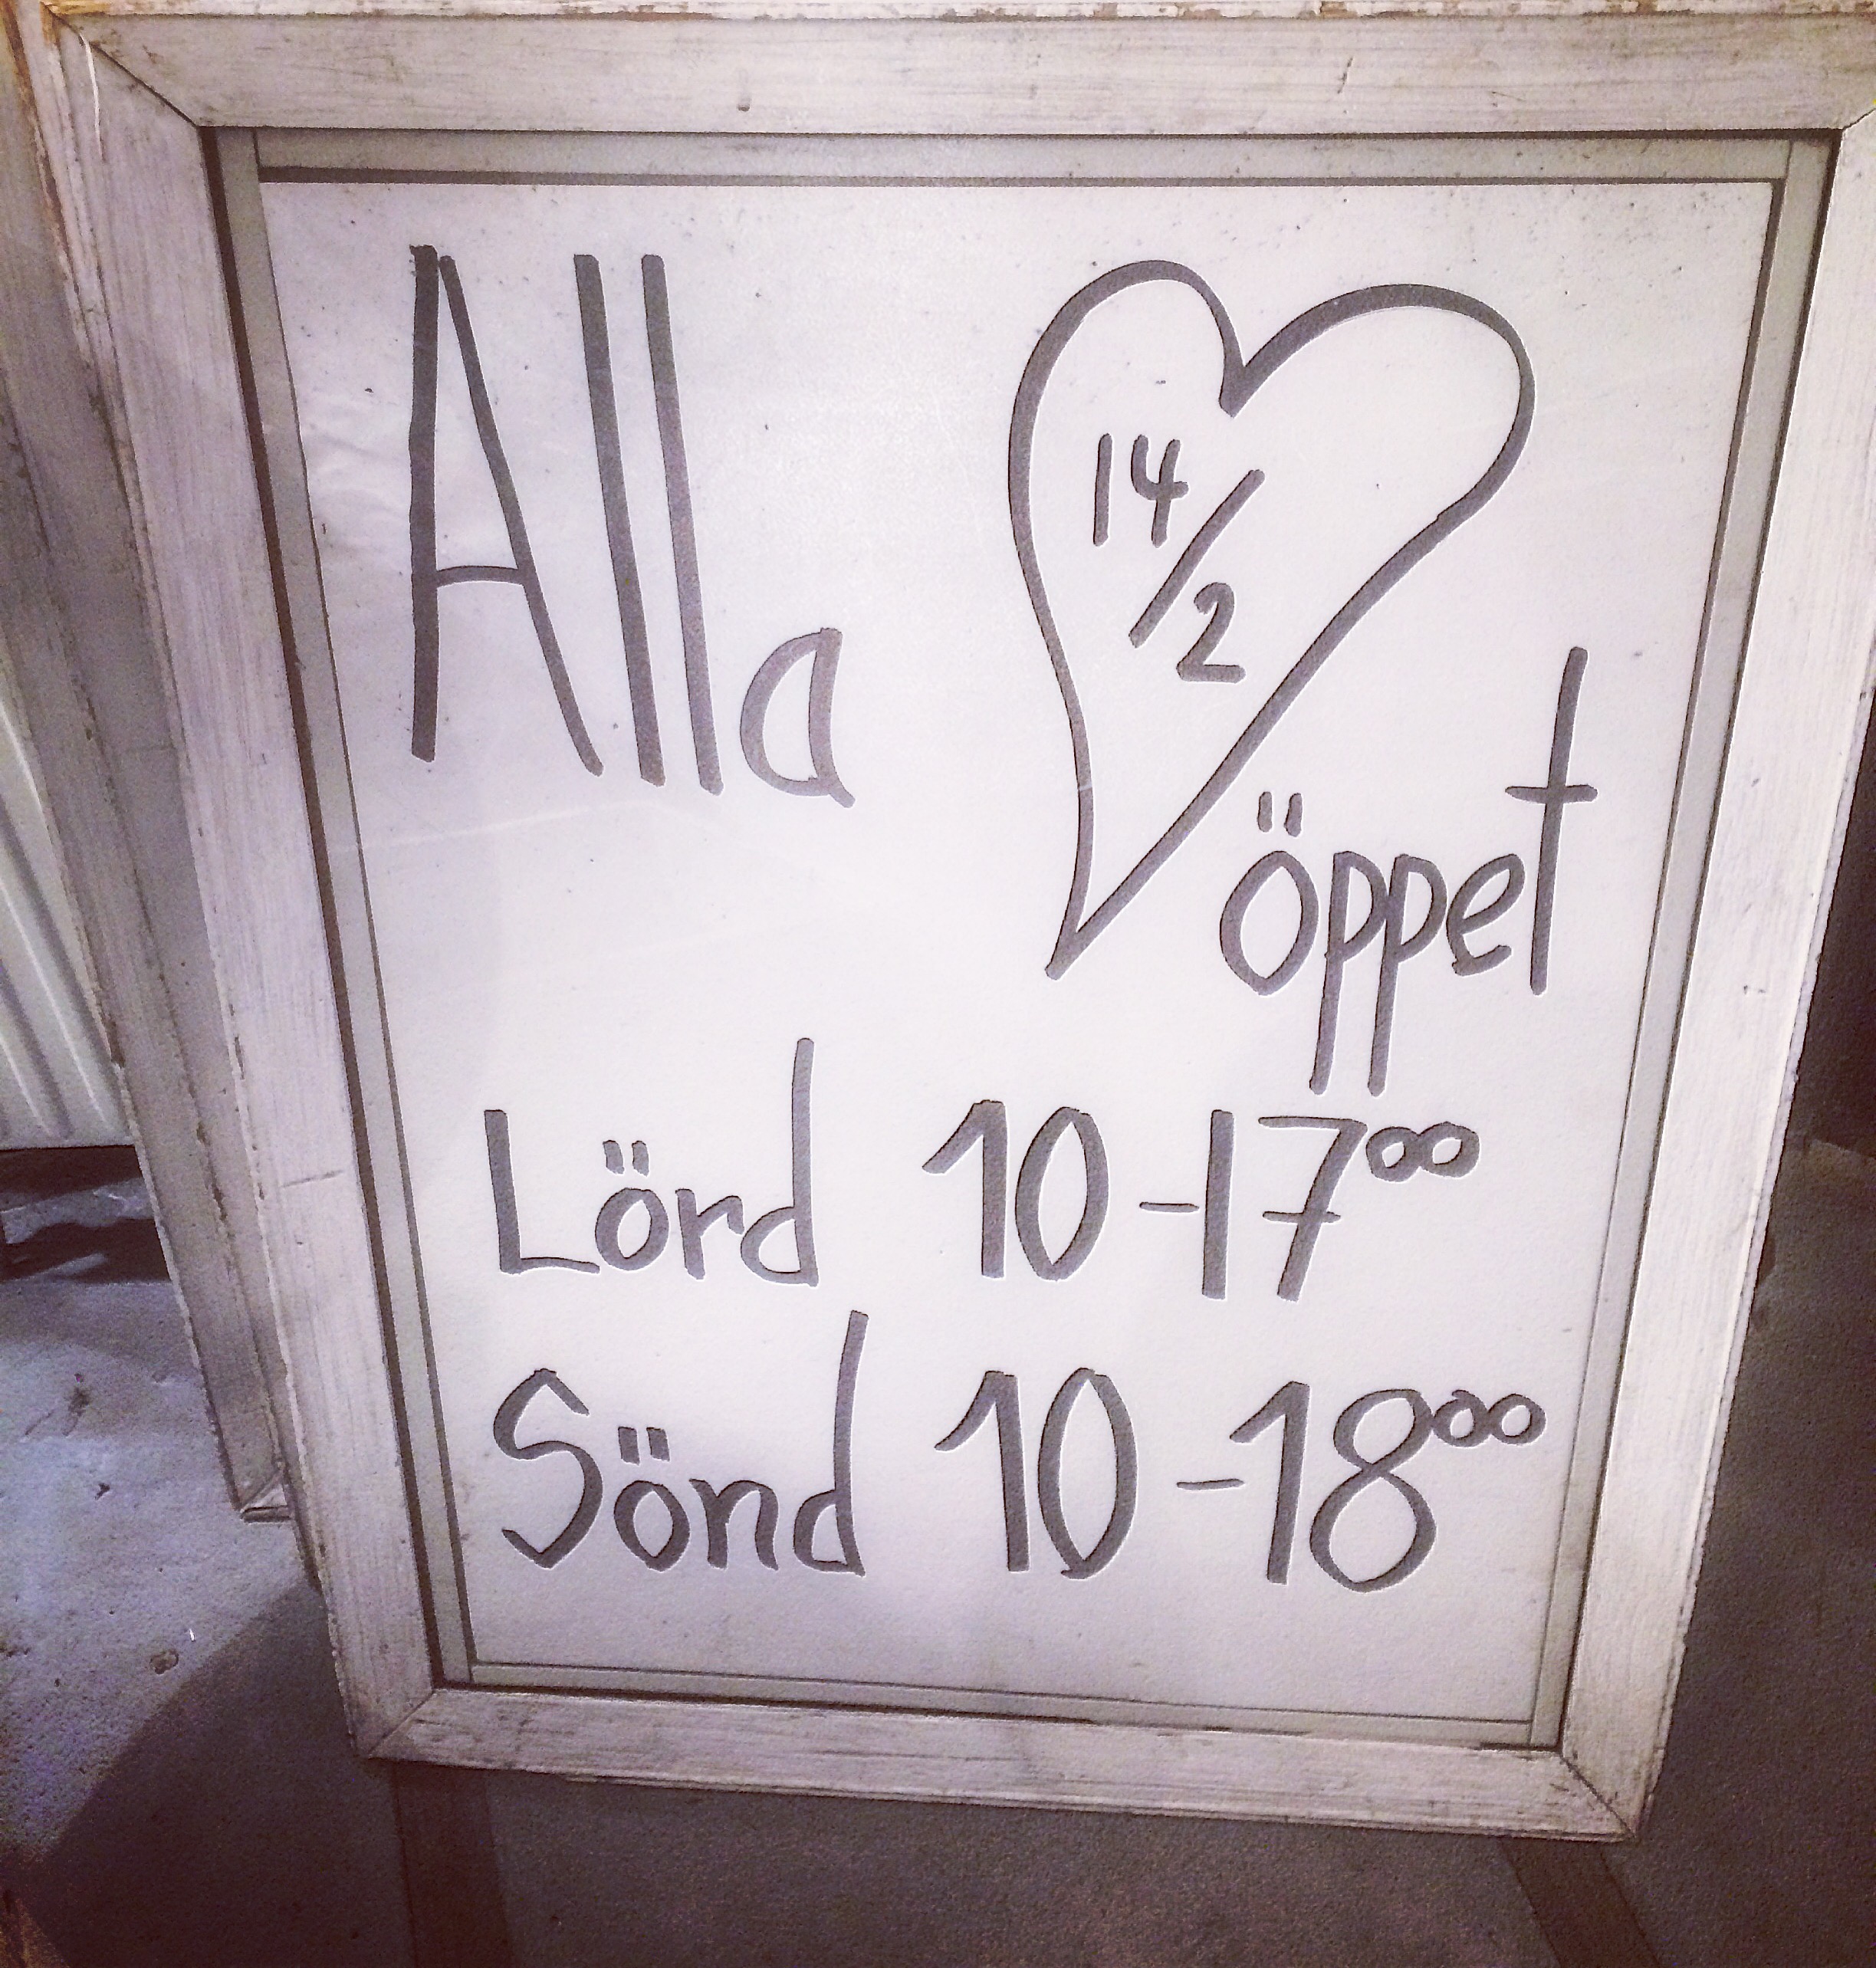 Alla
14/2
öppet
Lörd 10-17⁰⁰
Sönd 10-18⁰⁰